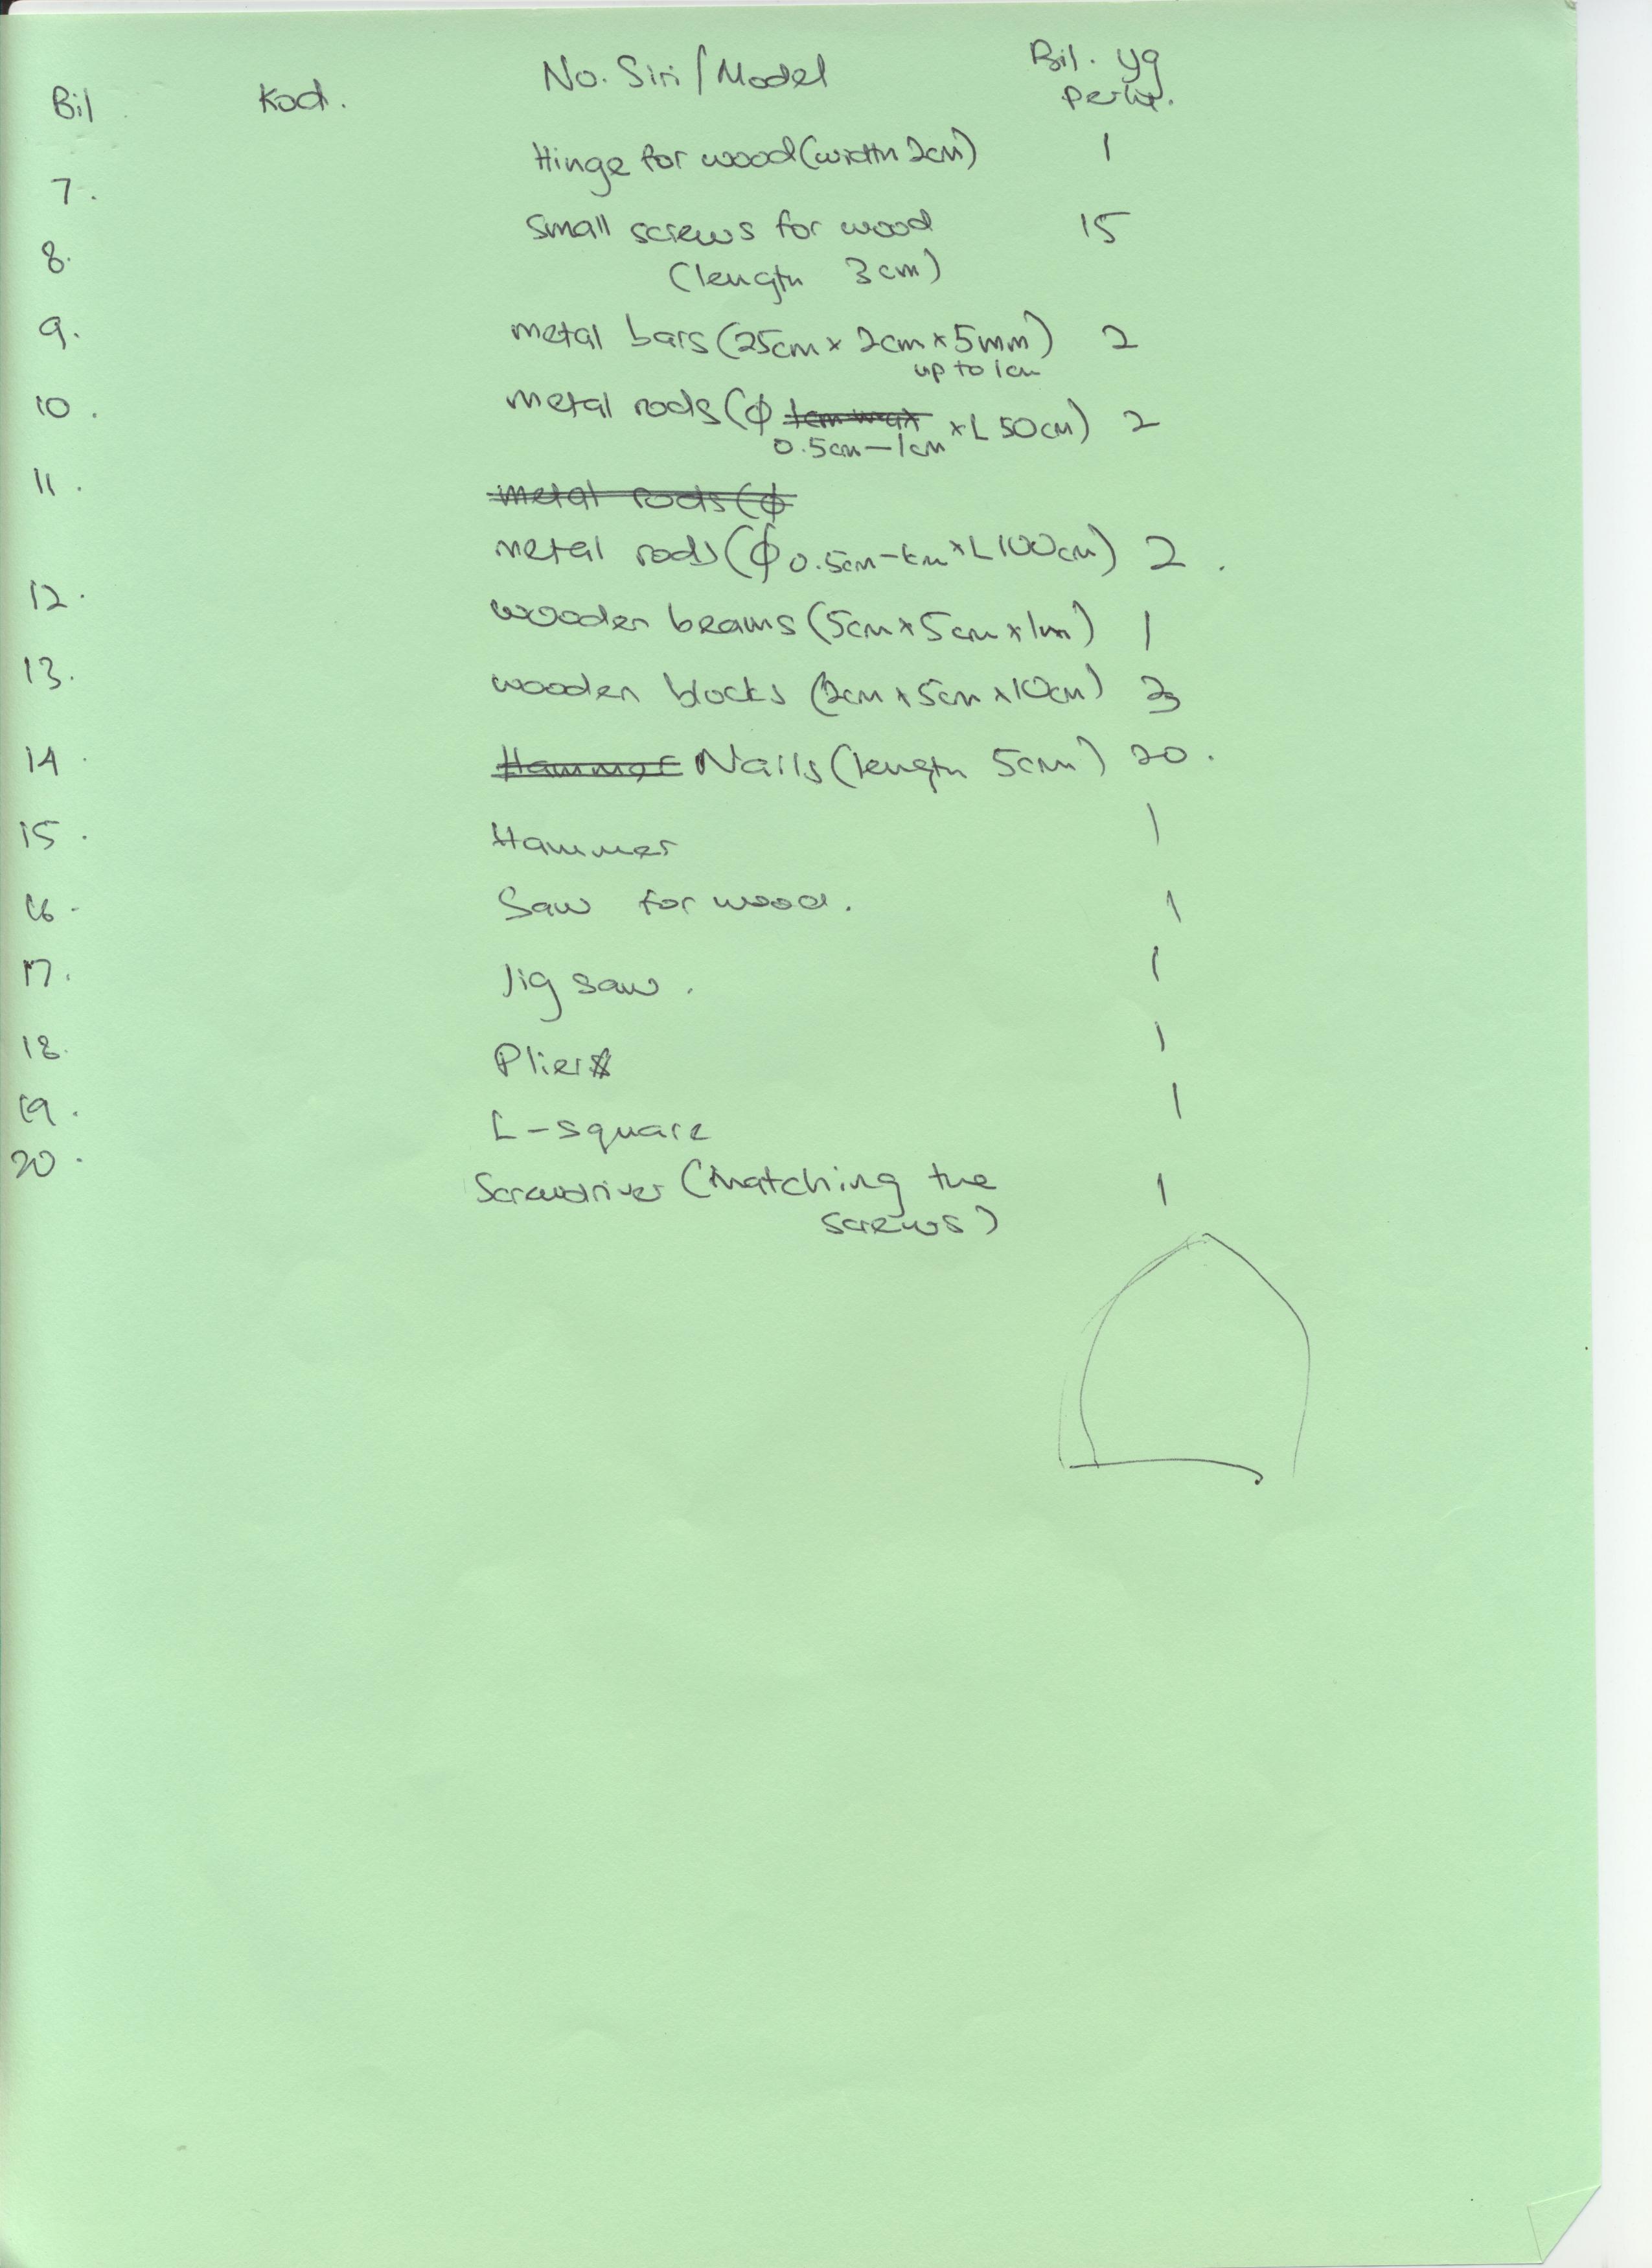 Bil Kod. No. Siri/Model Bil. yg
perlu.
7. Hinge for wood (width 2cm) 1
8. Small screws for wood 15
(length 3cm)
9. metal bars (25cm x 2cm x 5mm) 2
up to 1cm
10. metal rods (ϕ 1cm max x L 50cm) 2
0.5cm-1cm
11. metal rods (ϕ
metal rods (ϕ 0.5cm-1cm x L 100cm) 2.
12. wooden beams (5cm x 5cm x 1m) 1
13. wooden blocks (2cm x 5cm x 10cm) 3
14. Hammer Nails (length 5cm) 20.
15. Hammer 1
16. Saw for wood. 1
17. Jig saw. 1
18. Pliers 1
19. L-square 1
20. Screwdriver (matching the 1
screws)